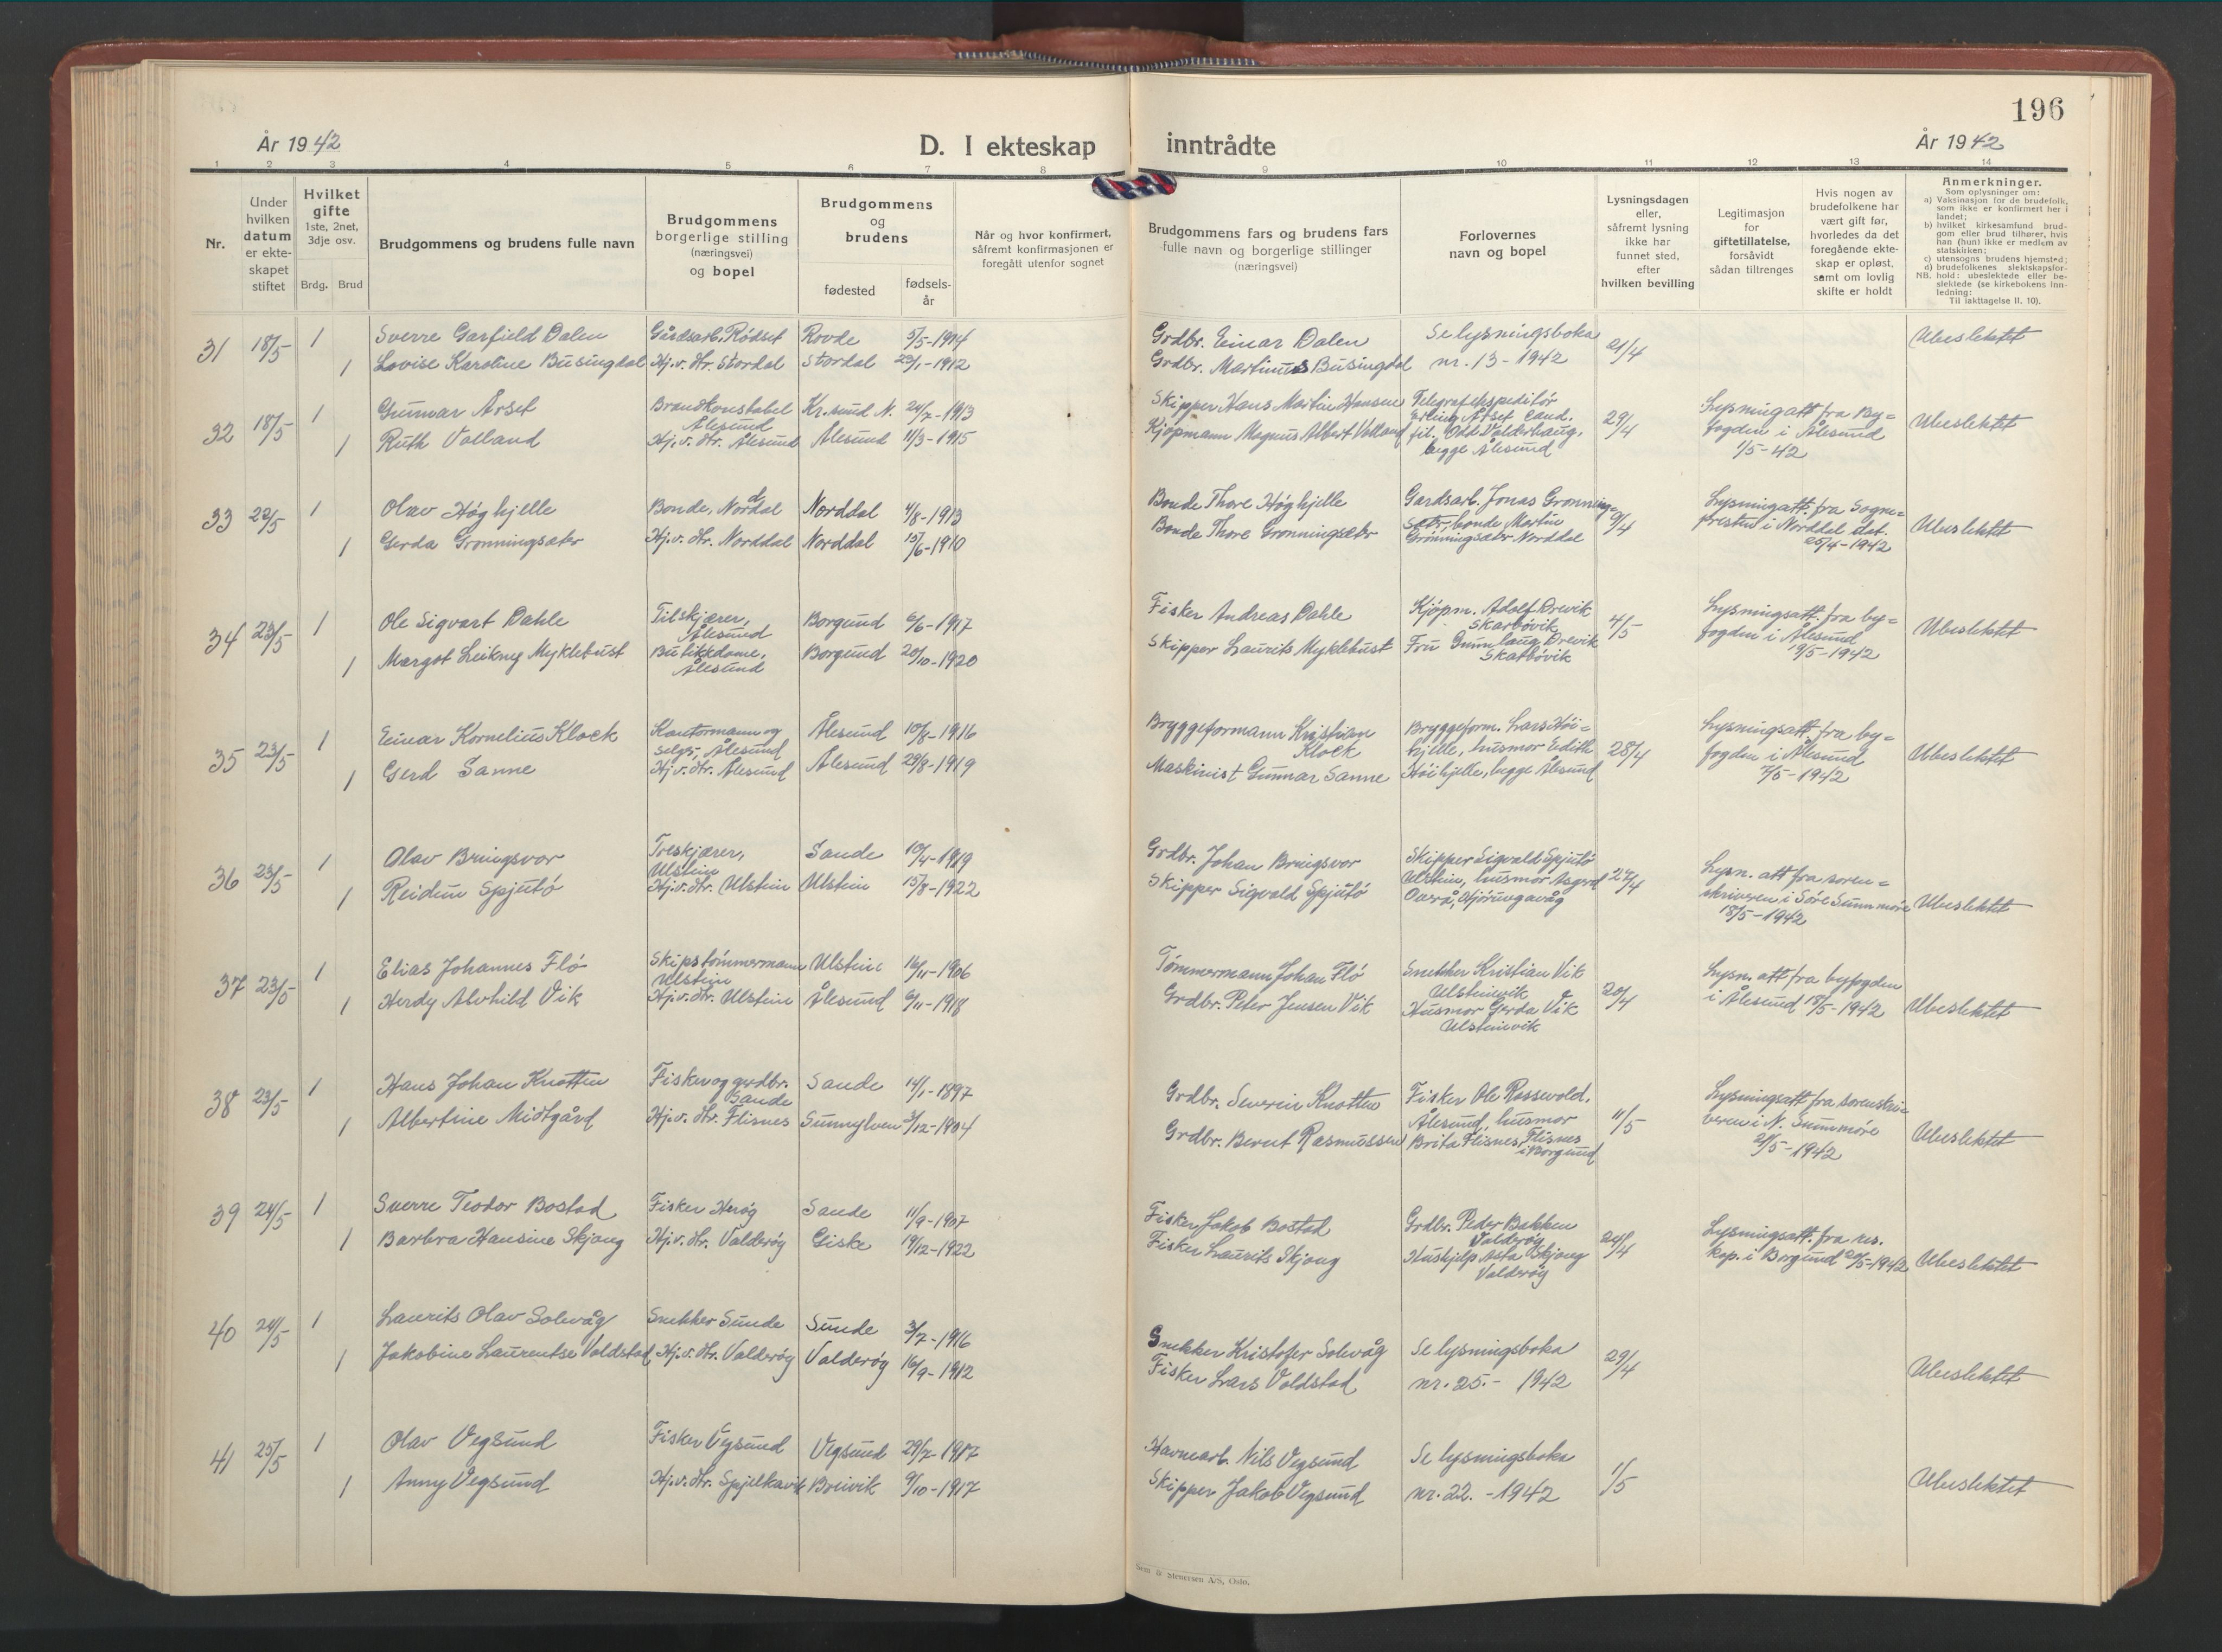 196
År 1942
D. I ekteskap inntrådte
År 1942
1 2 3 4 5 6 7 8 9 10 11 12 13 14
Nr.
Under hvilken datum er ekteskapet stiftet
Hvilket gifte 1ste, 2net, 3dje osv.
Brdg. Brud
Brudgommens og brudens fulle navn
Brudgommens borgerlige stilling (næringsvei) og bopel
Brudgommens og brudens
fødested
fødselsår
Når og hvor konfirmert, såfremt konfirmasjonen er foregått utenfor sognet
Brudgommens fars og brudens fars fulle navn og borgerlige stillinger (næringsvei)
Forlovernes navn og bopel
Lysningsdagen eller, såfremt lysning ikke har funnet sted, efter hvilken bevilling
Legitimasjon for giftetillatelse, forsåvidt sådan tiltrenges
Hvis nogen av brudefolkene har vært gift før, hvorledes da det foregående ekteskap er opløst, samt om lovlig skifte er holdt
Anmerkninger.
Som oplysninger om:
a) Vaksinasjon for de brudefolk, som ikke er konfirmert her i landet;
b) hvilket kirkesamfund brudgom eller brud tilhører, hvis han (hun) ikke er medlem av statskirken;
c) utensogns brudens hjemsted;
d) brudefolkenes slektskapsforhold: ubeslektede eller beslektede (se kirkebokens Innledning: Til iakttagelse II. 10).
NB.
31 18/5 1 Sverre Garfield Dalen Gårdsarb. Rødset Rovde 5/5-1914 Grdbr. Einar Dalen Se lysningsboka 21/4 Ubeslektet
1 Lovise Karoline Busingdal Hj.v. Hr. Stordal Stordal 23/1-1912 Grdbr. Martinus Busingdal nr. 13-1942
32 18/5 1 Gunnar Årset Brandkonstabel Ålesund Kr.sund N. 24/7-1913 Skipper Hans Martin Hansen Telegrafekspeditør Erling Årset, cand. 29/4 Lysningatt. fra Byfogden i Ålesund 1/5-42 Ubeslektet
1 Ruth Volland Hj.v. Hr. Ålesund Ålesund 11/3-1915 Kjøpmann Magnus Albert Volland fil. Odd Valderhaug, begge Ålesund
33 22/5 1 Olav Høghjelle Bonde, Norddal Norddal 4/8-1913 Bonde Thore Høghjelle Gardsarb. Jonas Grønningsæter, bonde Martin Grønningsæter Norddal 9/4 Lysningatt. fra Sognepresten i Norddal dat. 25/4-1942 Ubeslektet
1 Gerda Grønningsæter Hj.v. Hr. Norddal Norddal 15/6-1910 Bonde Thore Grønningsæter
34 23/5 1 Ole Sigvart Dahle Tilskjærer, Ålesund Borgund 6/6-1917 Fisker Andreas Dahle Kjøpm. Adolf Drevik Skarbøvik 4/5 Lysningsatt. fra byfogden i Ålesund 19/5-1942 Ubeslektet
1 Margot Leikny Myklebust Butikkdame, Ålesund Borgund 20/10-1920 Skipper Laurits Myklebust Fru Gunnlaug Drevik Skarbøvik
35 23/5 1 Einar Kornelius Klock Kontormann og selgs, Ålesund Ålesund 10/8-1916 Bryggeformann Kristian Klock Bryggeform. Lars Høihjelle, husmor Edith Høihjelle, begge Ålesund 28/4 Lysningsatt. fra byfogden i Ålesund 7/5-1942 Ubeslektet
1 Gerd Sanne Hj.v. Hr. Ålesund Ålesund 29/8-1919 Maskinist Gunnar Sanne
36 23/5 1 Olav Bringsvor Treskjærer, Ulstein Sande 10/4-1919 Grdbr. Johan Bringsvor Skipper Sigvald Spjutø Ulstein, husmor Asgerd Overå, Hjørungavåg 27/4 Lysn. att fra sorenskriveren i Søre Sunnmøre 18/5-1942 Ubeslektet
1 Reidun Spjutø Hj.v. Hr. Ulstein Ulstein 15/8-1922 Skipper Sigvald Spjutø
37 23/5 1 Elias Johannes Flø Skipstømmermann Ulstein Ulstein 16/11-1906 Tømmermann Johan Flø Snekker Kristian Vik Ulsteinvik 20/4 Lysn. att fra byfogden i Ålesund 18/5-1942 Ubeslektet
1 Herdy Alvhild Vik Hj.v. Hr. Ulstein Ålesund 6/11-1918 Grdbr. Peter Jensen Vik Husmor Gerda Vik Ulsteinvik
38 23/5 1 Hans Johan Knotten Fisker og grdbr. Sande Sande 14/1-1897 Grdbr. Severin Knotten Fisker Ole Rossevold, Ålesund, husmor 11/5 Lysningsatt fra sorenskriveren i N. Sunnmøre 21/5-1942 Ubeslektet
1 Albertine Midtgård Hj.v. Hr. Flisnes Sunnylven 3/12-1904 Grdbr. Bernt Rasmussen Brita Flisnes, Flisnes i Borgund
39 24/5 1 Sverre Teodor Bostad Fisker Herøy Sande 11/9-1907 Fisker Jakob Bostad Grdbr. Peder Bakken Valderøy 24/4 Lysningsatt. fra res. kap. i Borgund 20/5-1942 Ubeslektet
1 Barbra Hansine Skjong Hj.v. Hr. Valderøy Giske 19/12-1922 Fisker Laurits Skjong Hushjelp Asta Skjong Valderøy
40 24/5 1 Laurits Olav Solevåg Snekker Sunde Sunde 3/7-1916 Snekker Kristofer Solevåg Se lysningsboka 29/4 Ubeslektet
1 Jakobine Laurentse Voldstad Hj.v. Hr. Valderøy Valderøy 16/9-1912 Fisker Lars Voldstad nr. 25.- 1942
41 25/5 1 Olav Vegsund Fisker Vegsund Vegsund 29/7-1917 Havnearb. Nils Vegsund Se lysningsboka 1/5 Ubeslektet
1 Anny Vegsund Hj.v. Hr. Spjelkavik Breivik 9/10-1917 Skipper Jakob Vegsund nr. 22. - 1942
Stenersen A/S, Oslo.